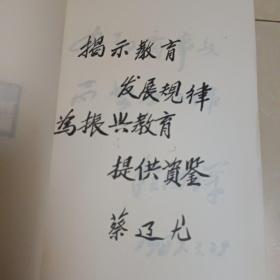 揭示教育
发展规律
为振兴教育
提供资鉴
蔡辽尤